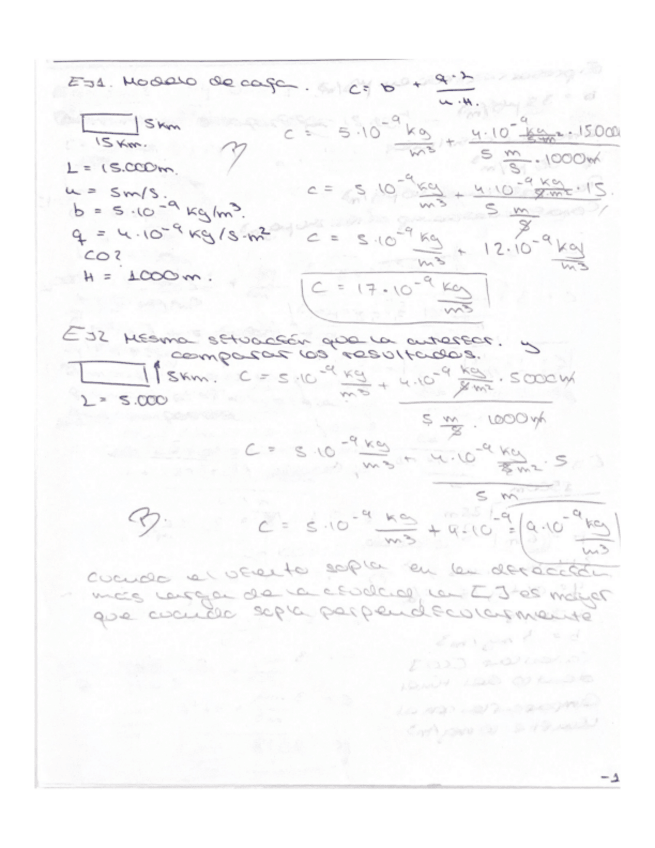 EJ1. Modelo de caja. C = b + q·L / u·H.
5km
15 Km.
C = 5·10⁻⁹ kg/m³ + 4·10⁻⁹ kg/s·m² · 15.000 / 5 m/s · 1000m
L = 15.000m.
u = 5m/s.
C = 5 10⁻⁹ kg/m³ + 4·10⁻⁹ kg/s·m² · 15 / 5 m/s
b = 5·10⁻⁹ kg/m³.
q = 4·10⁻⁹ kg/s·m²
C = 5·10⁻⁹ kg/m³ + 12·10⁻⁹ kg/m³
CO?
H = 1000m.
C = 17·10⁻⁹ kg/m³
EJ2 Misma situación que la anterior. y
comparar los resultados.
5km.
C = 5·10⁻⁹ kg/m³ + 4·10⁻⁹ kg/s m² · 5000m / 5 m/s · 1000m
L = 5.000
C = 5·10⁻⁹ kg/m³ + 4·10⁻⁹ kg/s m² · 5 / 5 m
C = 5·10⁻⁹ kg/m³ + 4·10⁻⁹ = 9·10⁻⁹ kg/m³
cuando el viento sopla en la dirección
más larga de la ciudad, la [ ] es mayor
que cuando sopla perpendicularmente
-1